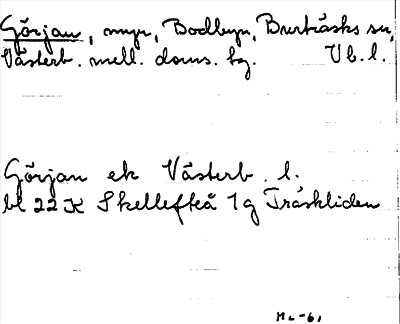 Görjan, myr, Bodbyn, Burträsks sn,
Västerb. mell. doms. hg. Vb. l.
Görjan ek Västerb. l.
bl 22 K Skellefteå 1g Träskliden
ML-61